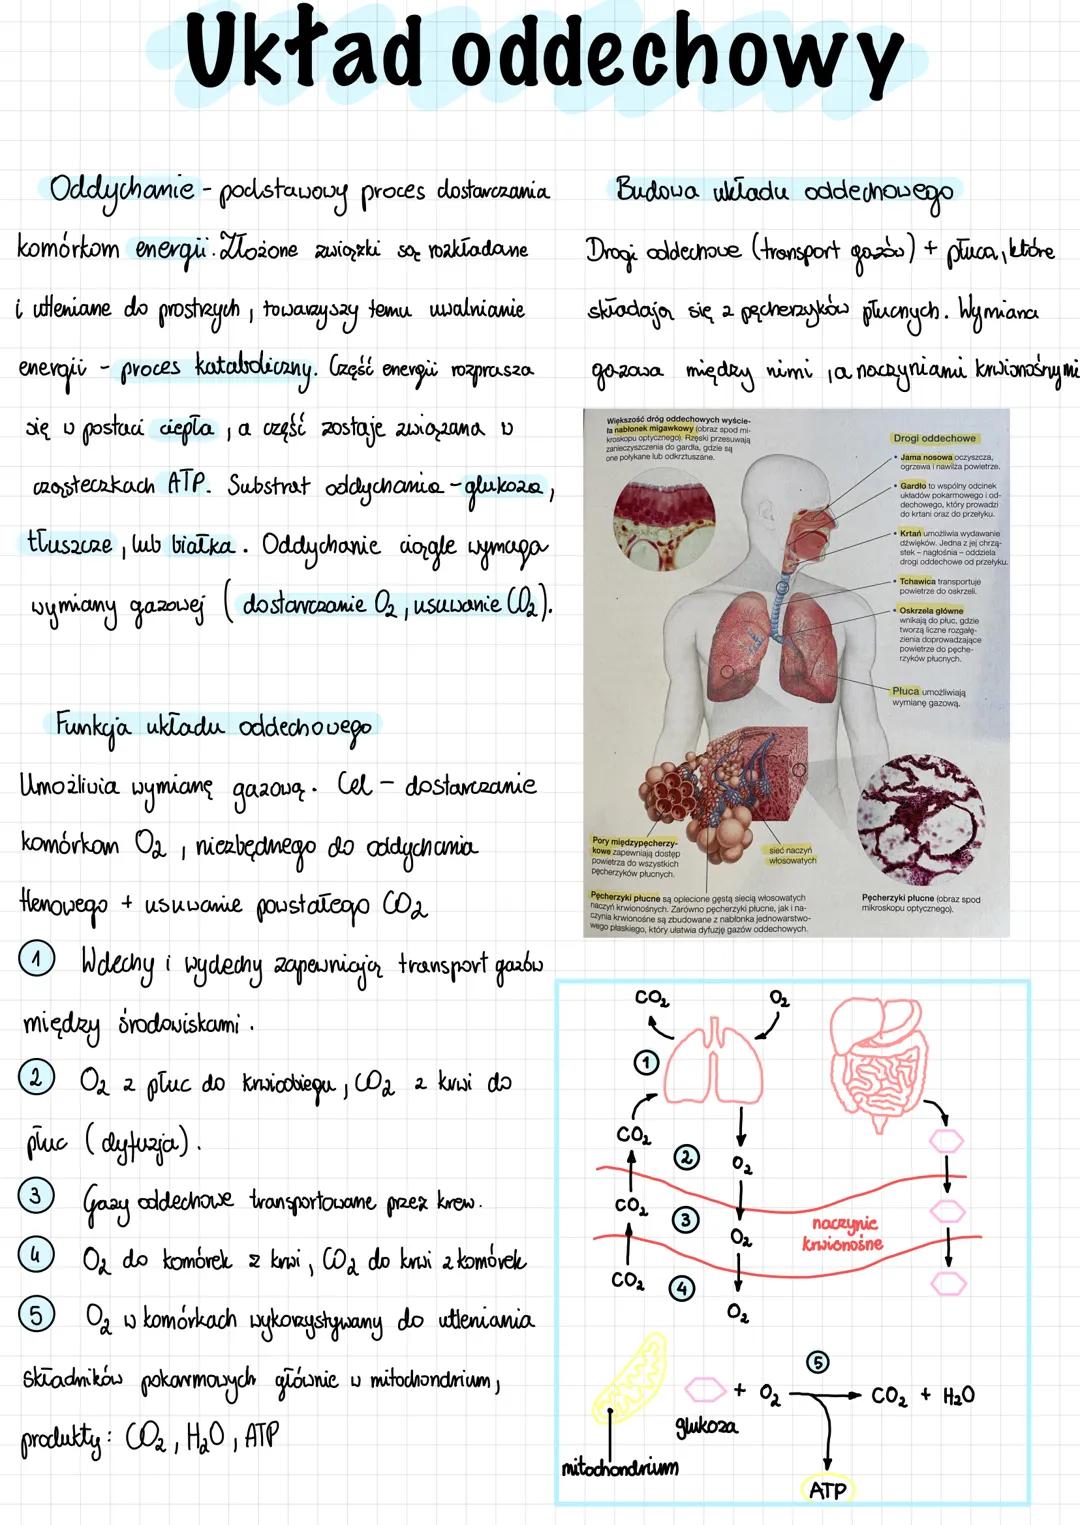 Układ oddechowy
Oddychanie - podstawowy proces dostarczania
komórkom energii. Złożone związki są rozkładane
i utleniane do prostrzych, towarzyszy temu uwalnianie
energii - proces kataboliczny. Część energii rozprasza
się w postaci ciepła, a część zostaje związana w
cząsteczkach ATP. Substrat oddychania - glukoza,
tłuszcze, lub białka. Oddychanie ciągle wymaga
wymiany gazowej (dostarczanie O₂, usuwanie CO₂).
Funkcja układu oddechowego
Umożliwia wymianę gazową. Cel - dostarczanie
komórkom O₂, niezbędnego do oddychania
tlenowego + usuwanie powstałego CO₂
1 Wdechy i wydechy zapewniają transport gazów
między środowiskami.
2 O₂ z płuc do krwiobiegu, CO₂ z krwi do
płuc (dyfuzja).
3 Gazy oddechowe transportowane przez krew.
4 O₂ do komórek z krwi, CO₂ do krwi z komórek
5 O₂ w komórkach wykorzystywany do utleniania
składników pokarmowych głównie w mitochondrium,
produkty: CO₂, H₂O, ATP
Budowa układu oddechowego
Drogi oddechowe (transport gazów) + płuca, które
składają się z pęcherzyków płucnych. Wymiana
gazowa między nimi, a naczyniami krwionośnymi
Większość dróg oddechowych wyście-
ła nabłonek migawkowy (obraz spod mi-
kroskopu optycznego). Rzęski przesuwają
zanieczyszczenia do gardła, gdzie są
one połykane lub odkrztuszane.
Drogi oddechowe
• Jama nosowa oczyszcza,
ogrzewa i nawilża powietrze.
• Gardło to wspólny odcinek
układów pokarmowego i od-
dechowego, który prowadzi
do krtani oraz do przełyku.
• Krtań umożliwia wydawanie
dźwięków. Jedna z jej chrzą-
stek – nagłośnia – oddziela
drogi oddechowe od przełyku.
• Tchawica transportuje
powietrze do oskrzeli.
• Oskrzela główne
wnikają do płuc, gdzie
tworzą liczne rozgałę-
zienia doprowadzające
powietrze do pęche-
rzyków płucnych.
Płuca umożliwiają
wymianę gazową.
Pory międzypęcherzy-
kowe zapewniają dostęp
powietrza do wszystkich
pęcherzyków płucnych.
sieć naczyń
włosowatych
Pęcherzyki płucne są oplecione gęstą siecią włosowatych
naczyń krwionośnych. Zarówno pęcherzyki płucne, jak i na-
czynia krwionośne są zbudowane z nabłonka jednowarstwo-
wego płaskiego, który ułatwia dyfuzję gazów oddechowych.
Pęcherzyki płucne (obraz spod
mikroskopu optycznego).
CO₂ O₂
1
CO₂
2 O₂
CO₂
3 O₂
naczynie
krwionośne
CO₂
4
O₂
5
+ O₂ CO₂ + H₂O
glukoza
mitochondrium
ATP